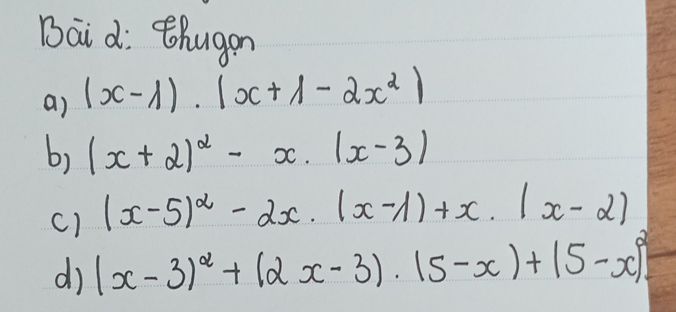 Bài 2: Thu gọn
a) (x-1).(x+1-2x²)
b) (x+2)² - x.(x-3)
c) (x-5)² - 2x.(x-1)+x.(x-2)
d) (x-3)² + (2x-3).(5-x)+(5-x)².